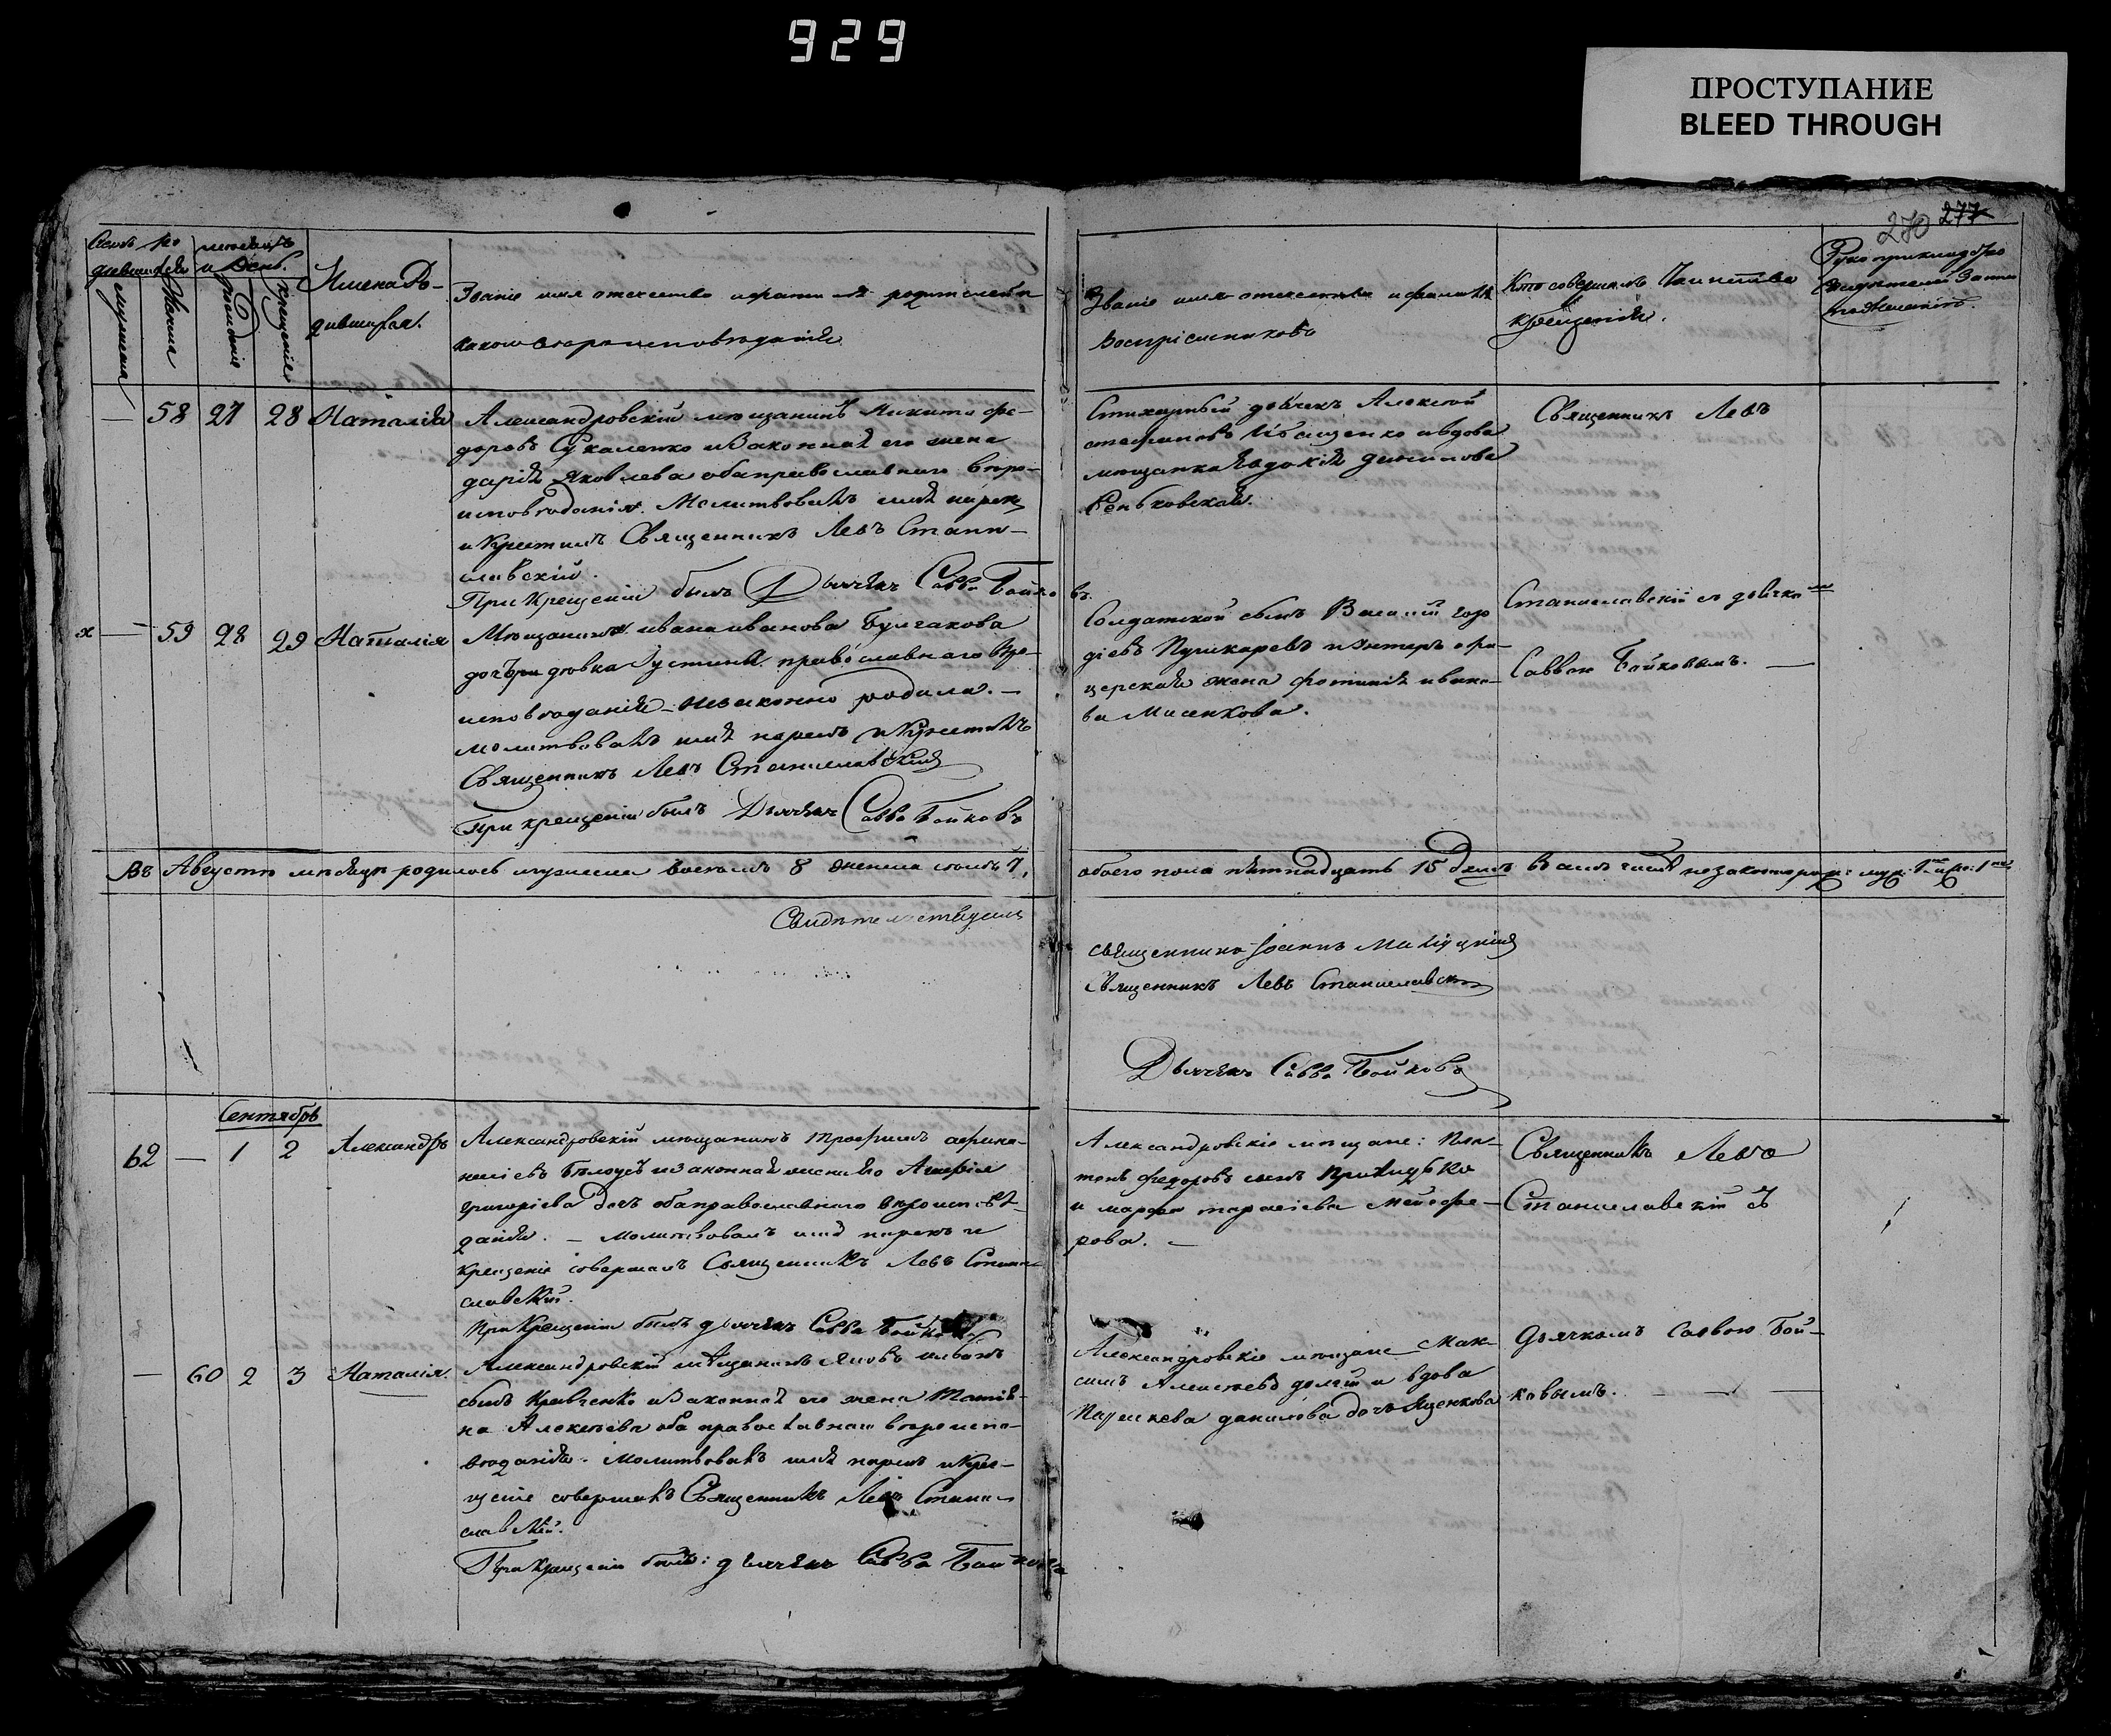 929
ПРОСТУПАНИЕ
BLEED THROUGH
270 277
Счетъ ро
дившихся
мужеска
Женска
мѣсяцъ
и день.
рожденія
крещенія
Имена Ро-
дившихся.
Званіе имя отечество и фамилія родителей и
какого вѣроисповѣданія
Званіе имя отечество и фамилія
Воспріемниковъ
Кто совершалъ Таинство
крещенія.
Рукоприкладство
Свидѣтелей Записи
по желанію
— 58 27 28 Наталія
Александровскій мѣщанинъ Никита Фе-
доровъ Сукаленко и Законная его жена
Дарія Яковлева оба православнаго вѣро-
исповѣданія. Молитвовалъ имя нарекъ
и Крестилъ Священникъ Левъ Стани-
славскій.
При Крещеніи былъ Дьячекъ Савва Бойковъ.
Стихарный дьячекъ Алексѣй
Стефановъ Иващенко и вдова
мѣщанка Евдокія
Сеньковская.
Священникъ Левъ
х — 59 28 29 Наталія
Мѣщанина Ивана Иванова Булгакова
дочь дѣвка Устинія православнаго вѣро-
исповѣданія незаконно родила. —
молитвовалъ имя нарекъ и Крестилъ
Священникъ Левъ Станиславскій
При крещеніи былъ Дьячекъ Савва Бойковъ
Солдатской сынъ Василій Гор
діевъ Пушкаревъ и Унтеръ офи-
церская жена Фотинія Ивано-
ва Мисенкова.
Станиславскій съ дьячкомъ
Саввою Бойковымъ. —
Въ Августѣ мѣсяцѣ родилось мужеска восемь 8 женска семь 7,
обоего пола пятнадцать 15 душъ в томъ числѣ незаконнорож: муж: 1 и жен: 1
Свидѣтельствуемъ
священникъ Іоаннъ
Священникъ Левъ Станиславскій
Дьячекъ Савва Бойковъ
Сентябрь
62 — 1 2 Александръ
Александровскій мѣщанинъ Трофимъ Афана-
сіевъ Бѣлоусъ и законная жена его
Григоріева дочь оба православнаго вѣроисповѣ-
данія. — Молитвовалъ имя нарекъ и
крещеніе совершалъ Священникъ Левъ Стани-
славскій.
При Крещеніи былъ дьячекъ Савва Бойковъ
Александровскіе мѣщане: Пла-
тонъ Федоровъ сынъ Прихидько
и Марфа Тарасіева
рова. —
Священникъ Левъ
Станиславскій съ
— 60 2 3 Наталія.
Александровскій мѣщанинъ Яковъ Ивановъ
сынъ Кравченко и Законная его жена Татія-
на Алексѣева оба православнаго вѣроиспо-
вѣданія. Молитвовалъ имя нарекъ и Кре-
щеніе совершалъ Священникъ Левъ Стани-
славскій.
При Крещеніи былъ: дьячекъ Савва Бойковъ
Александровскіе мѣщане Мак-
симъ Алексѣевъ Долгій и вдова
Параскева Данилова дочь Яценкова
Дьячкомъ Саввою Бой-
ковымъ. —